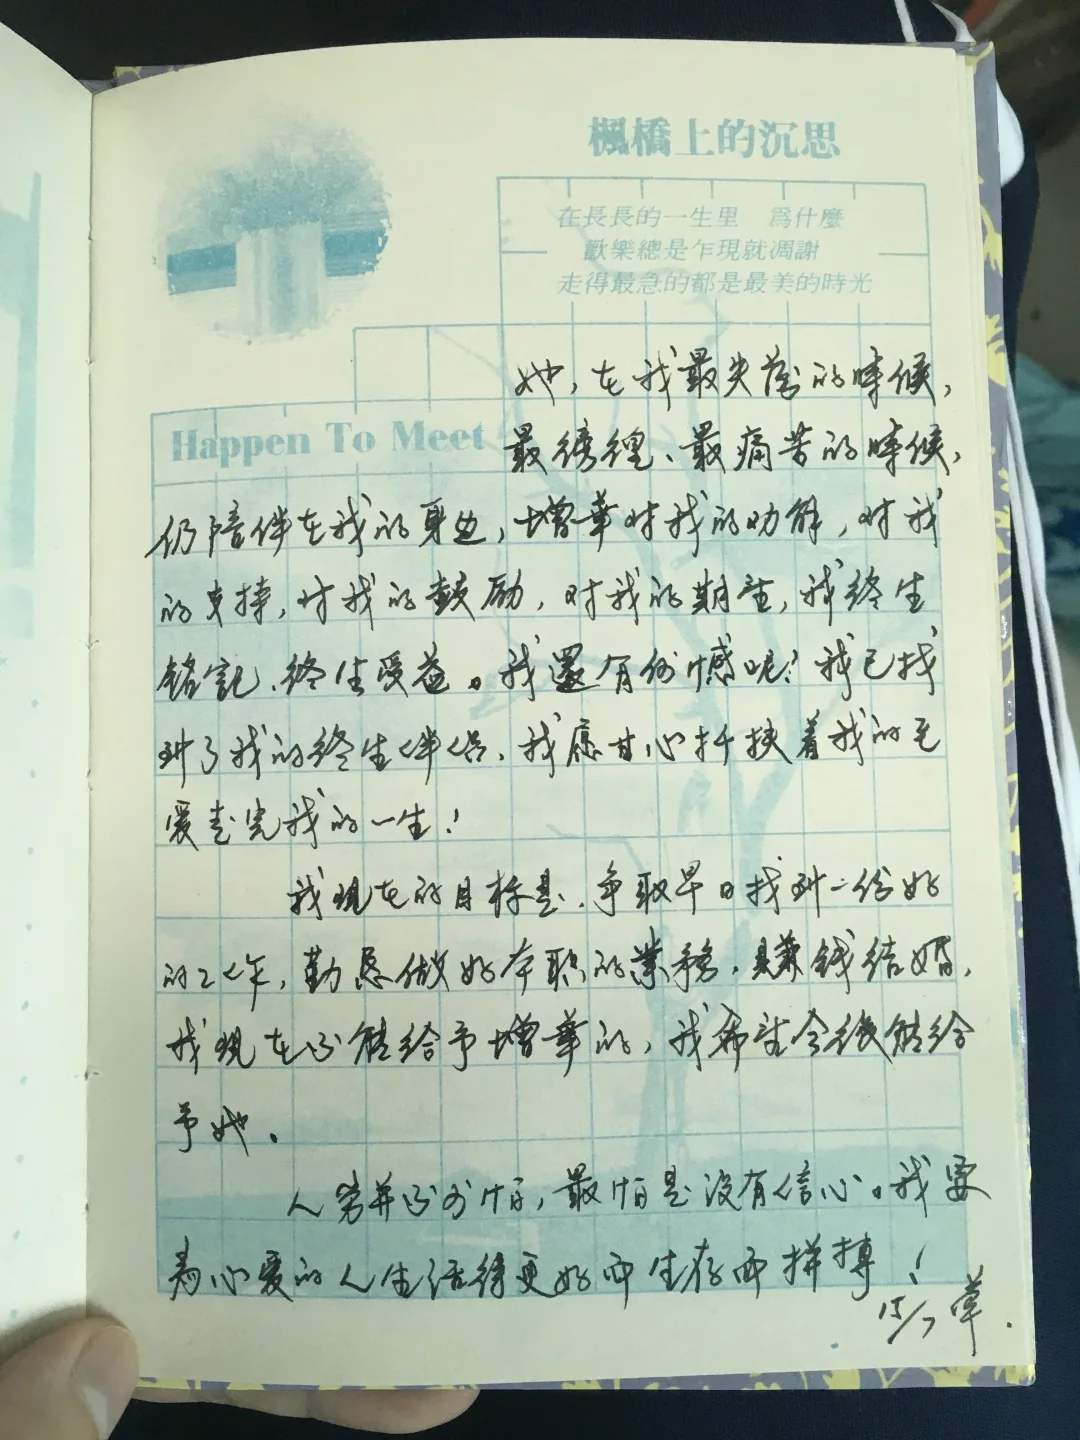 楓橋上的沉思
在長長的一生里　爲什麼
歡樂總是乍現就凋謝
走得最急的都是最美的時光
Happen To Meet
她，在我最失落的時候，
最徬徨、最痛苦的時候，
仍陪伴在我的身边，增華对我的劝解，对我
的支持，对我的鼓励，对我的期望，我终生
铭記、终生受益。我還有何憾呢？我已找
到了我的终生伴侣，我愿甘心扶着我的毛
爱走完我的一生！
我现在的目标是，争取早日找到一份好
的工作，勤恳做好本职的業務，賺钱结婚，
我现在不能给予增華的，我希望今後能给
予她。
人穷并不可怕，最怕是没有信心。我要
為心爱的人生活得更好而生存而拼搏！
15/7 華.